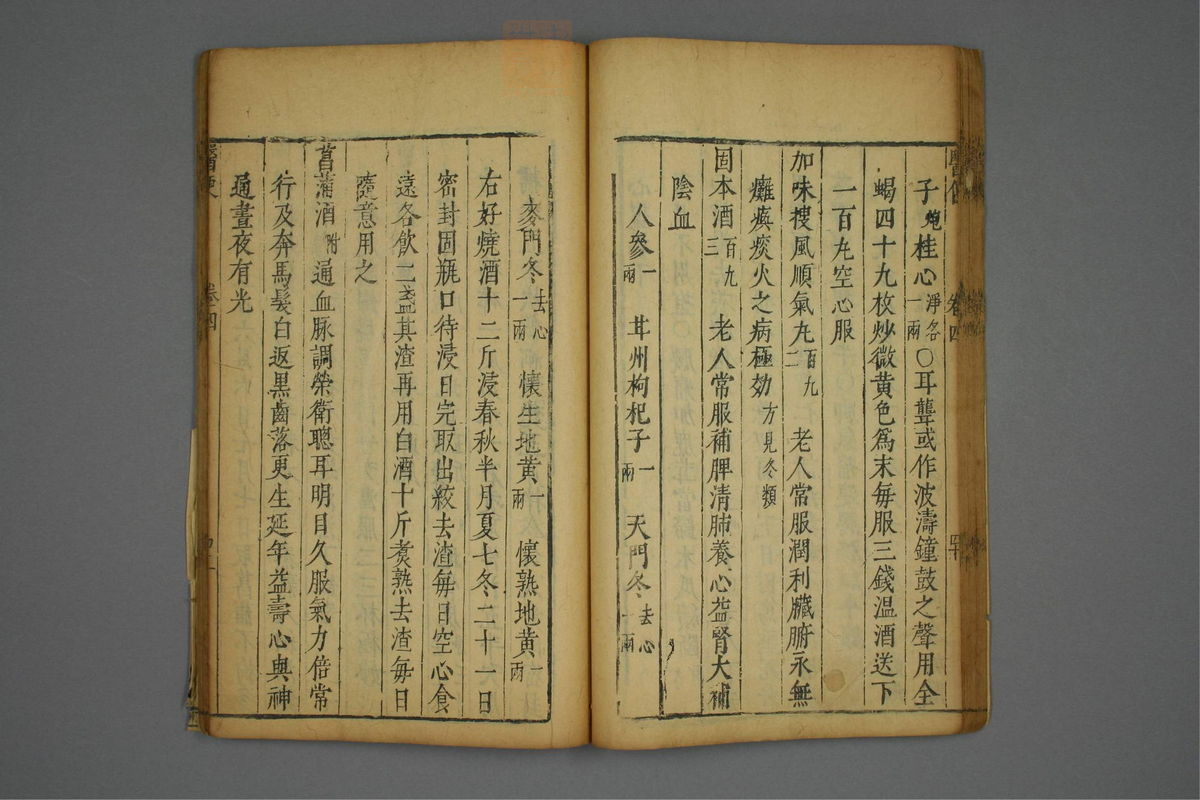 子炮桂心淨各一兩〇耳聾或作波濤鐘鼓之聲用全
蝎四十九枚炒微黃色爲末每服三錢温酒送下
一百九空心服
加味搜風順氣九百九二老人常服潤利臟腑永無
癱瘓痰火之病極効方見冬類
固本酒百九三老人常服補脾清肺養心益腎大補
陰血
人參一兩甘州枸杞子一兩天門冬去心一兩
麥門冬去心一兩懷生地黃一兩懷熟地黃一兩
右好燒酒十二斤浸春秋半月夏七冬二十一日
密封固瓶口待浸日完取出絞去渣每日空心食
遠各飲二盞其渣再用白酒十斤煑熟去渣每日
隨意用之
菖蒲酒附通血脉調榮衛聰耳明目久服氣力倍常
行及奔馬髮白返黑齒落更生延年益壽心與神
通晝夜有光
卷四